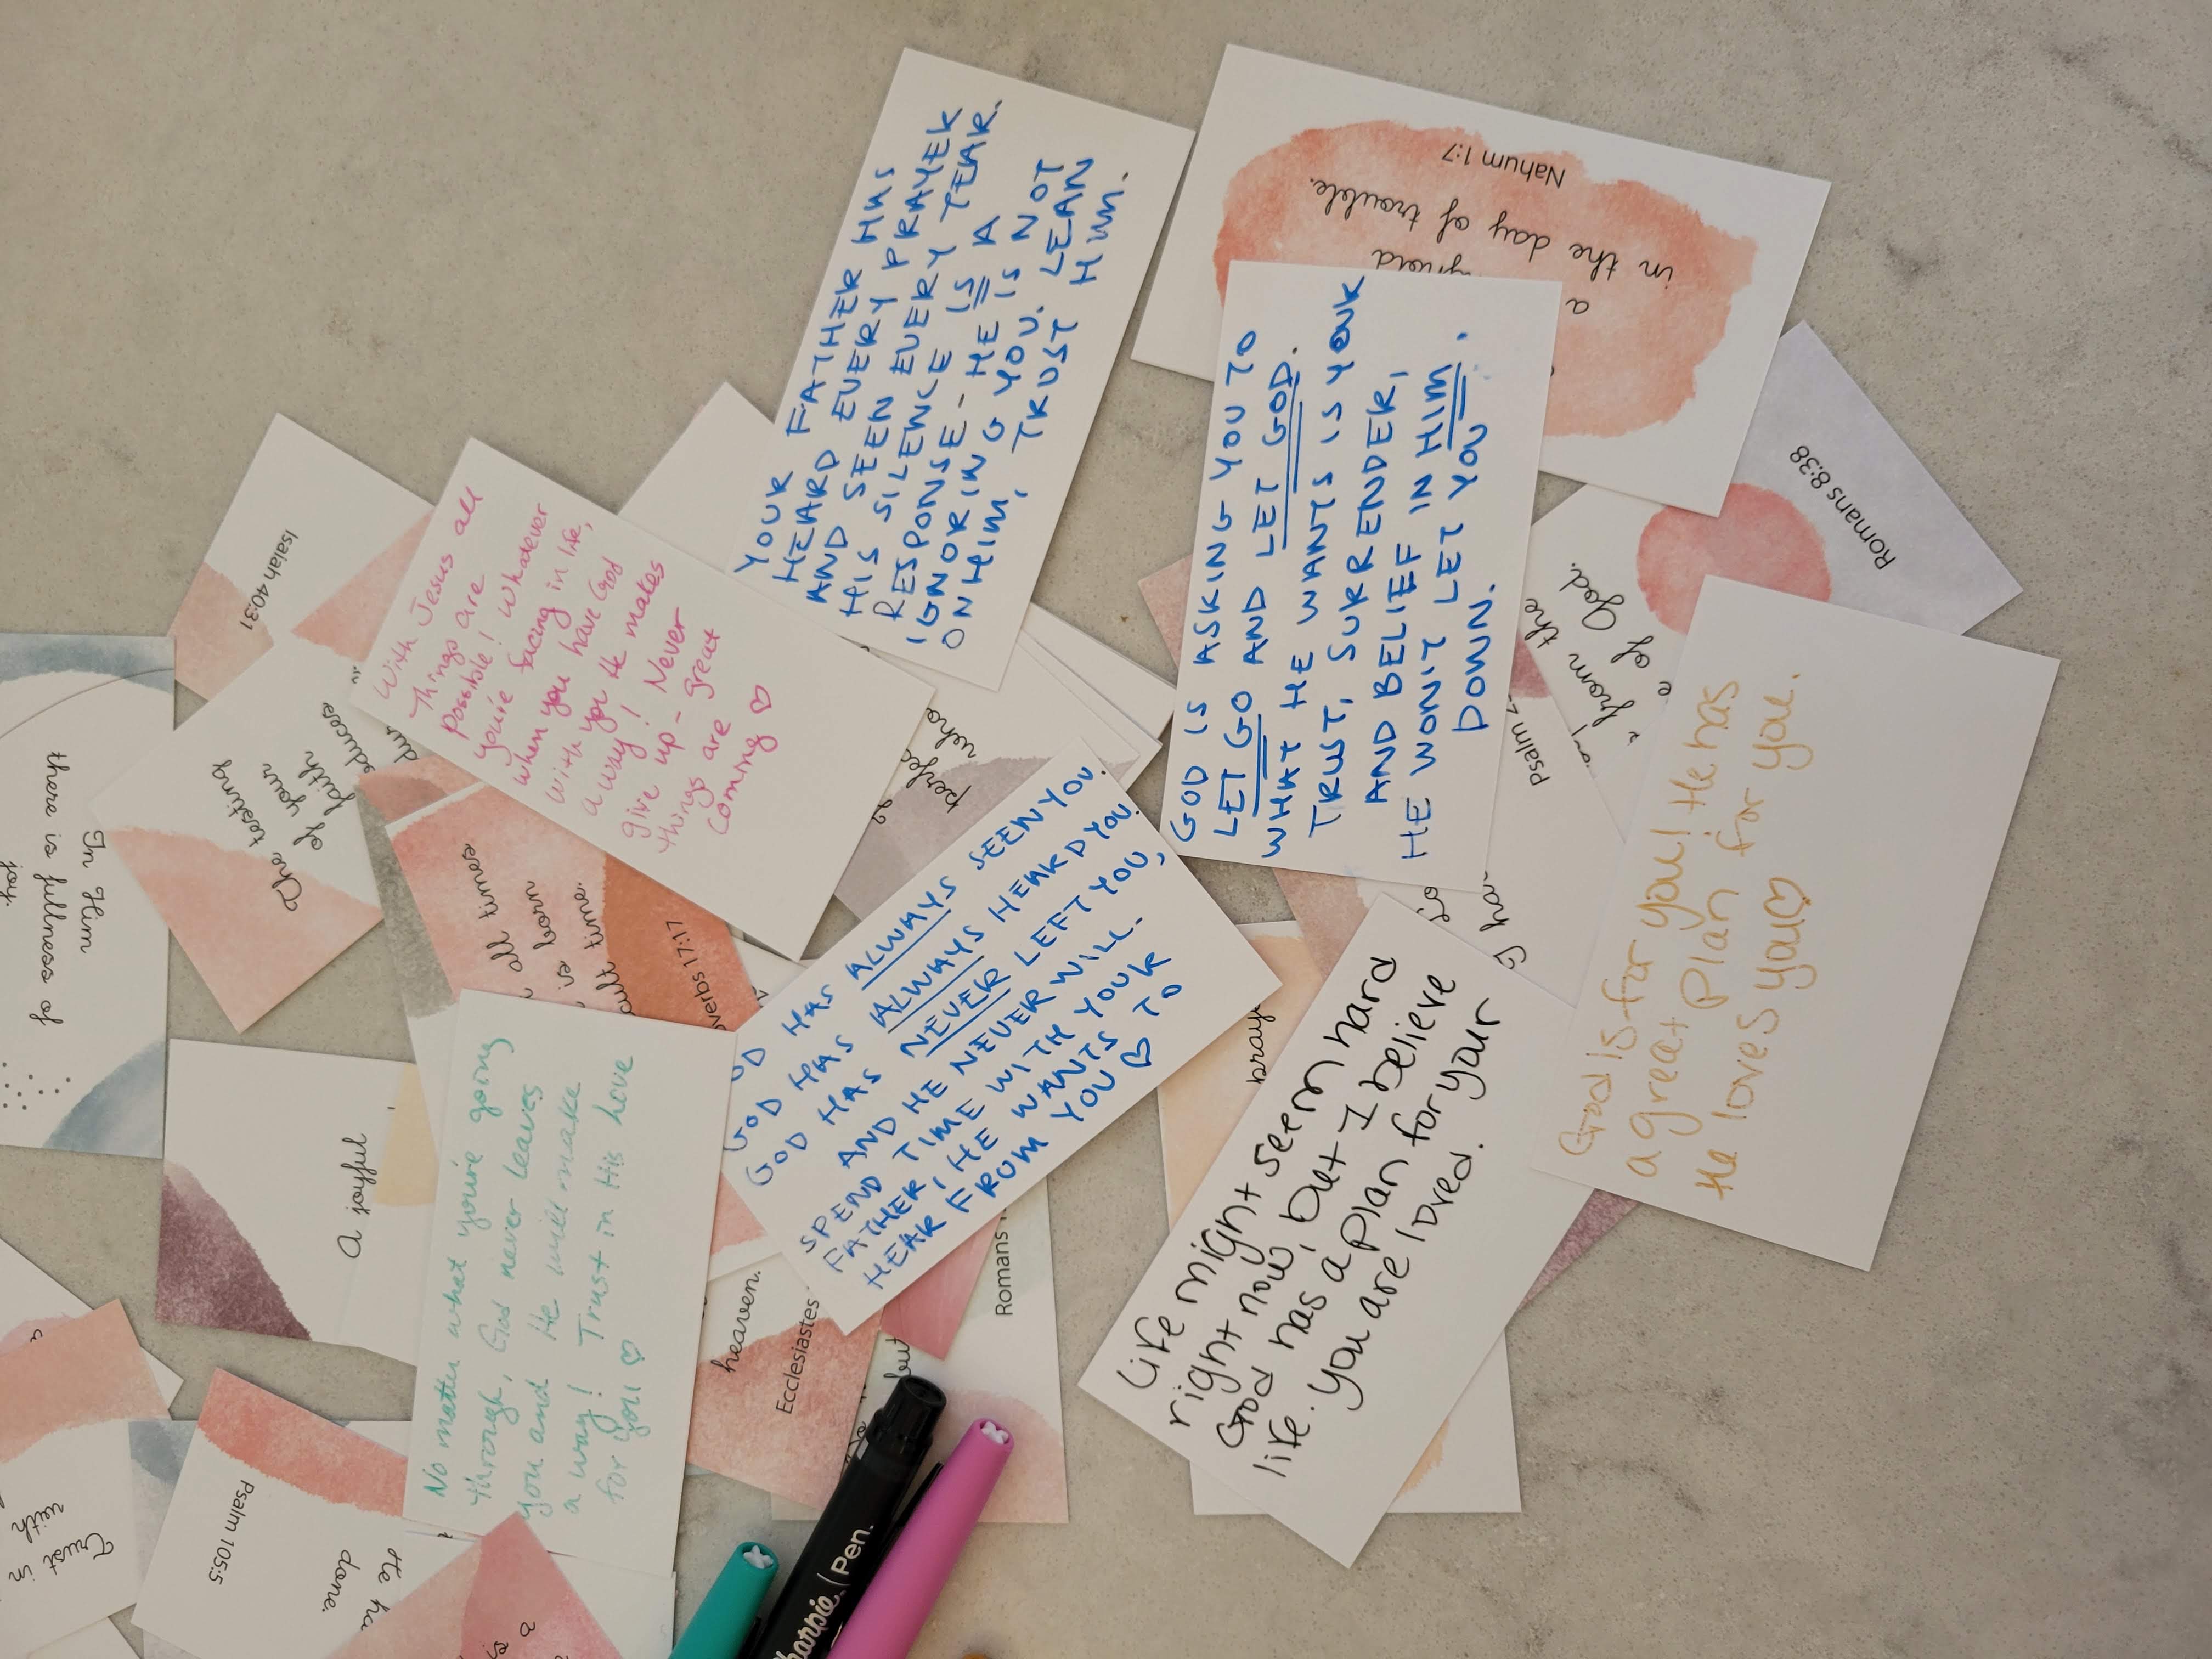 Trust in
with
In Him
there is fullness of
joy.
Psalm 105:5
He ha
done.
A joyful
The testing
of your
faith
oduces
dur
Isaiah 40:31
is a
No matter what you're going
through, God never leaves
you and He will make
a way! Trust in His love
for you ♡
all times
is born
cult time.
overbs 17:17
With Jesus all
Things are
possible! Whatever
you're facing in life,
when you have God
with you He makes
a way! Never
give up - great
things are
coming ♡
heaven.
Ecclesiastes
Sharpie. | Pen.
but
Romans 1
OD HAS ALWAYS SEEN YOU.
GOD HAS ALWAYS HEARD YOU.
GOD HAS NEVER LEFT YOU,
AND HE NEVER WILL.
SPEND TIME WITH YOUR
FATHER, HE WANTS TO
HEAR FROM YOU ♡
perfec
who
YOUR FATHER HAS
HEARD EVERY PRAYER
AND SEEN EVERY TEAR.
HIS SILENCE IS A
RESPONSE - HE IS NOT
IGNORING YOU. LEAN
ON HIM, TRUST HIM.
Life might seem hard
right now, but I believe
God has a plan for your
life. you are loved.
praye
GOD IS ASKING YOU TO
LET GO AND LET GOD.
WHAT HE WANTS IS YOUR
TRUST, SURRENDER,
AND BELIEF IN HIM.
HE WON'T LET YOU
DOWN.
Lo
I ha
Psalm 2
from the
e of God.
Romans 8:38
a
in the day of trouble.
Nahum 1:7
God is for you! He has
a great plan for you.
He loves you♡